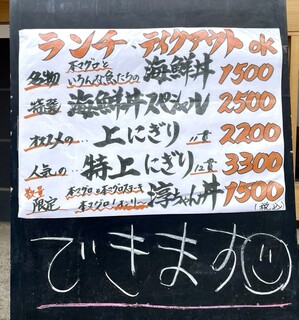 ランチ、テイクアウトOK
名物 本マグロといろんな魚たちの 海鮮丼 1500
特選 海鮮丼スペシャル 2500
オススメの… 上にぎり 12貫 2200
人気の… 特上にぎり 12貫 3300
数量限定 本マグロ 本マグロ 淳ちゃん丼 1500
(税込)
できます